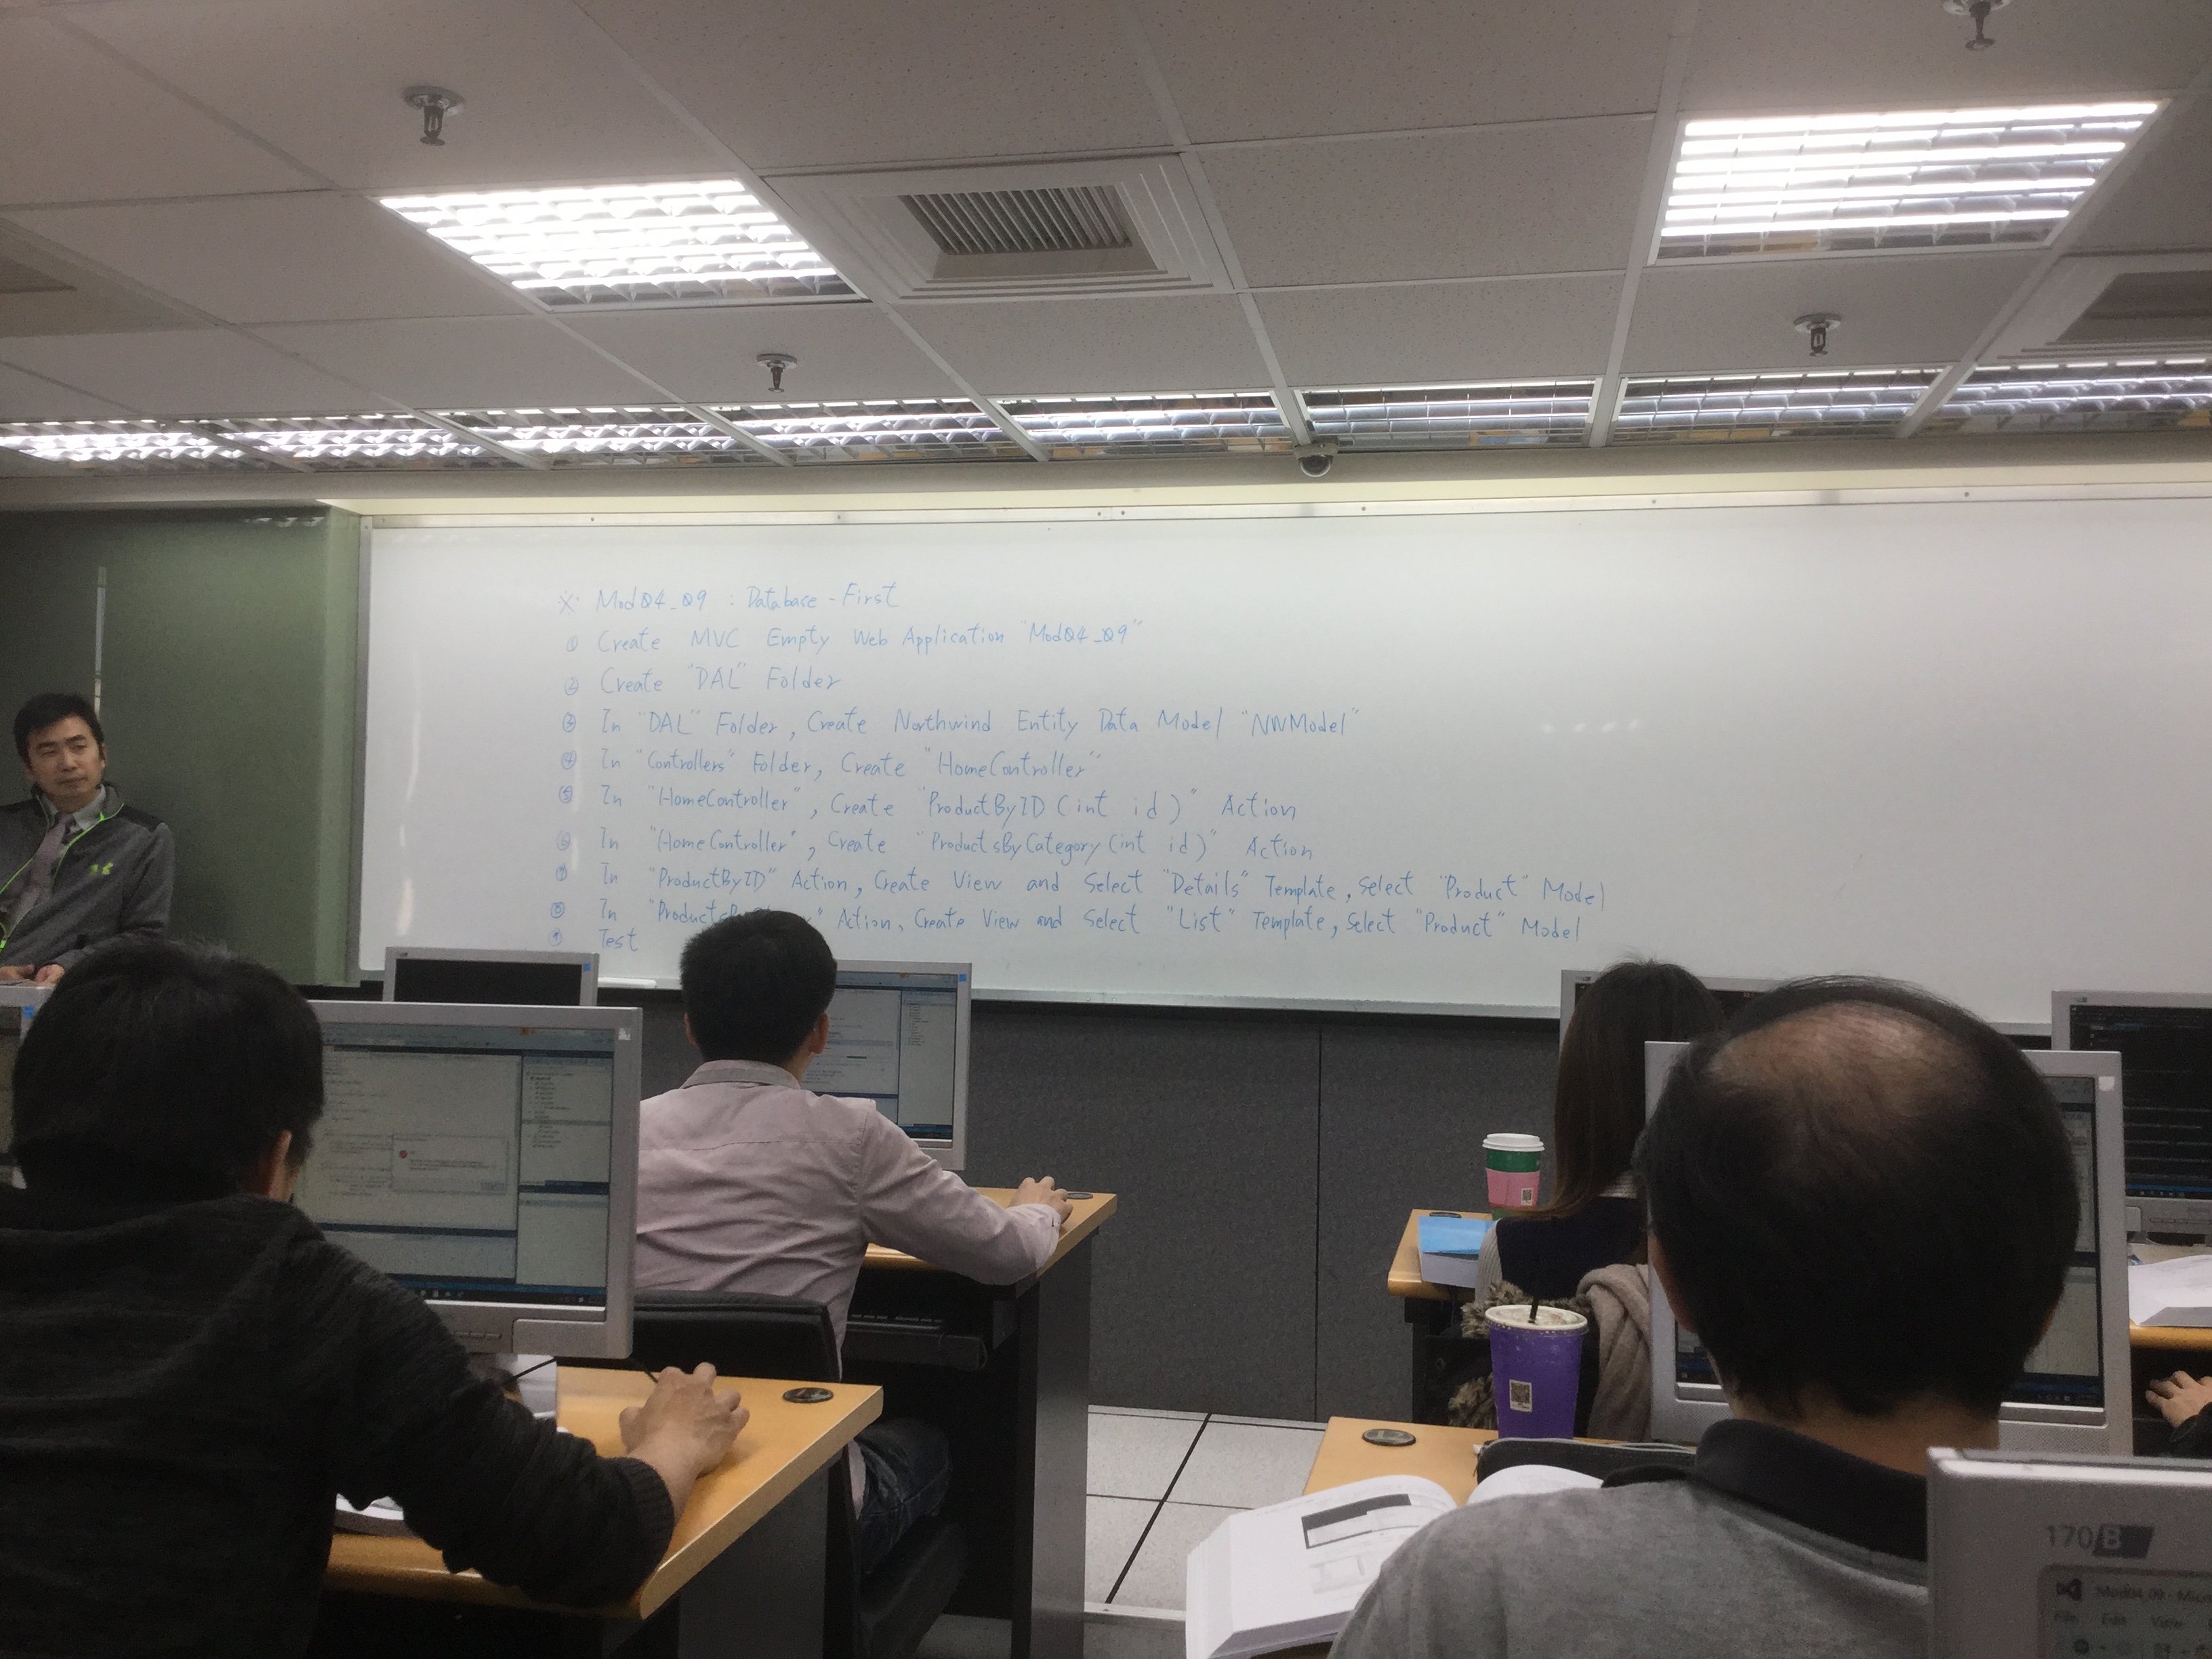 ※ Mod04_09 : Database-First
① Create MVC Empty Web Application "Mod04_09"
② Create "DAL" Folder
③ In "DAL" Folder, Create Northwind Entity Data Model "NWModel"
④ In "Controllers" Folder, Create "HomeController"
⑤ In "HomeController", Create "ProductByID (int id)" Action
⑥ In "HomeController", Create "ProductsByCategory (int id)" Action
⑦ In "ProductByID" Action, Create View and Select "Details" Template, Select "Product" Model
⑧ In Action, Create View and Select "List" Template, Select "Product" Model
⑨ Test
170B
Mod04_09 - Mic
File Edit View